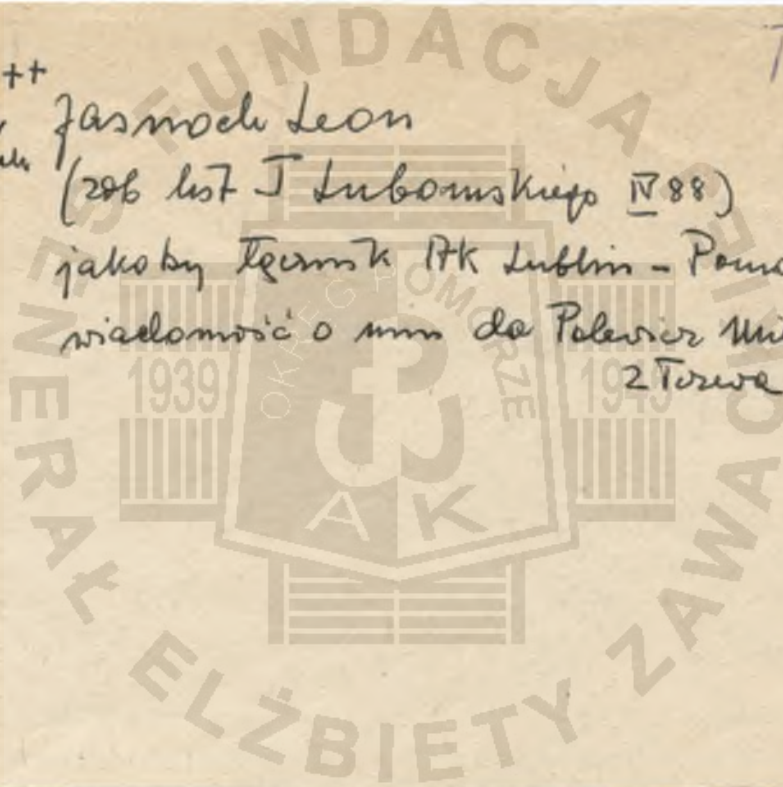 ++
Jasnoch Leon
(zob list J Lubomskiego IV 88)
jakoby łącznik AK Lublin – Pomo
wiadomość o nim da Polewicz
z Tczewa
FUNDACJA GENERAŁ ELŻBIETY ZAWACKIEJ
OKRĘG POMORZE
1939 1945
AK